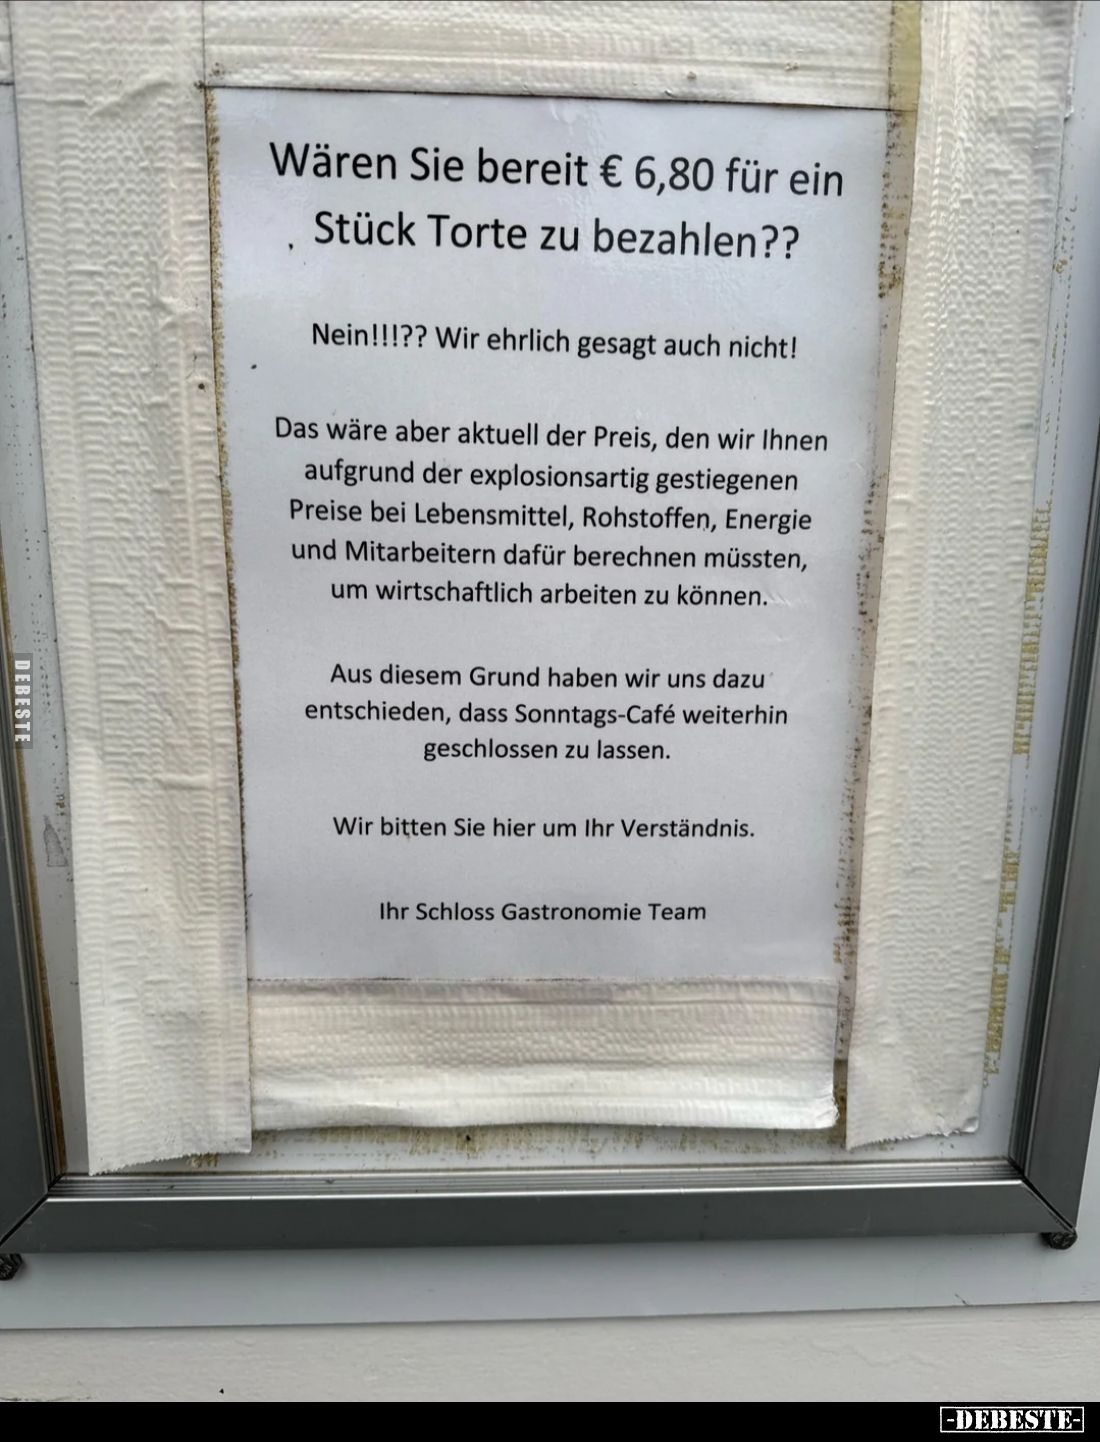 Wären Sie bereit € 6,80 für ein
Stück Torte zu bezahlen??
Nein!!!?? Wir ehrlich gesagt auch nicht!
Das wäre aber aktuell der Preis, den wir Ihnen
aufgrund der explosionsartig gestiegenen
Preise bei Lebensmittel, Rohstoffen, Energie
und Mitarbeitern dafür berechnen müssten,
um wirtschaftlich arbeiten zu können.
Aus diesem Grund haben wir uns dazu
entschieden, dass Sonntags-Café weiterhin
geschlossen zu lassen.
Wir bitten Sie hier um Ihr Verständnis.
Ihr Schloss Gastronomie Team
DEBESTE
-DEBESTE-